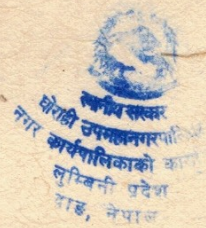 स्थानीय सरकार
घोराही उपमहानगरपालि
नगर कार्यपालिकाको कार्या
लुम्बिनी प्रदेश
दाङ, नेपाल